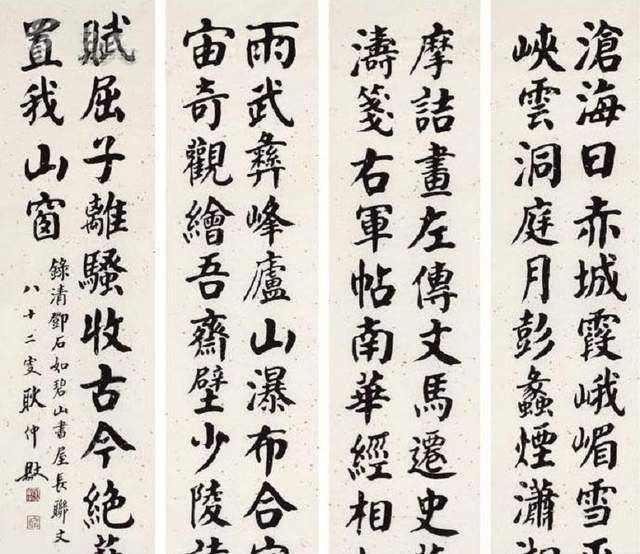 滄海日赤城霞峨嵋雪
峽雲洞庭月彭蠡煙瀟
摩詰畫左傳文馬遷史
濤箋右軍帖南華經相
雨武彝峰廬山瀑布合
宙奇觀繪吾齋壁少陵
賦屈子離騷收古今絕
置我山窗
錄清鄧石如碧山書屋長聯文
八十二叟耿仲敭